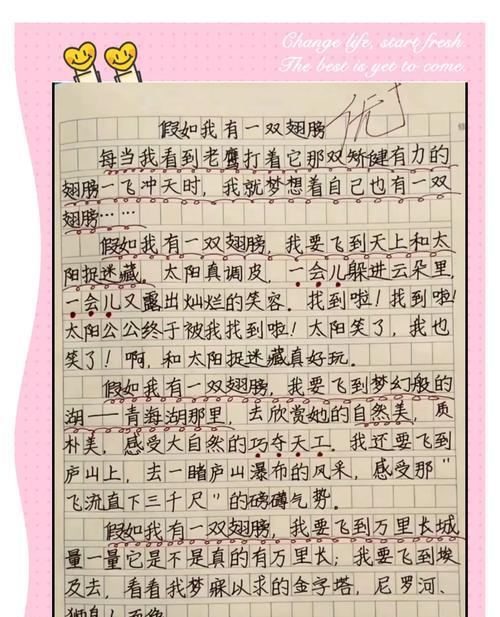 Change life, start fresh.
The best is yet to come.
假如我有一双翅膀
优
每当我看到老鹰打着它那双矫健有力的
翅膀一飞冲天时，我就梦想着自己也有一双
翅膀……
假如我有一双翅膀，我要飞到天上和太
阳捉迷藏。太阳真调皮，一会儿躲进云朵里，
一会儿又露出灿烂的笑容。找到啦！找到啦！
太阳公公终于被我找到啦！太阳笑了，我也
笑了！啊，和太阳捉迷藏真好玩。
假如我有一双翅膀，我要飞到梦幻般的
湖——青海湖那里，去欣赏她的自然美，质
朴美，感受大自然的巧夺天工。我还要飞到
庐山上，去一睹庐山瀑布的风采，感受那"
飞流直下三千尺"的磅礴气势。
假如我有一双翅膀，我要飞到万里长城
量一量它是不是真的有万里长；我要飞到埃
及去，看看我梦寐以求的金字塔，尼罗河、